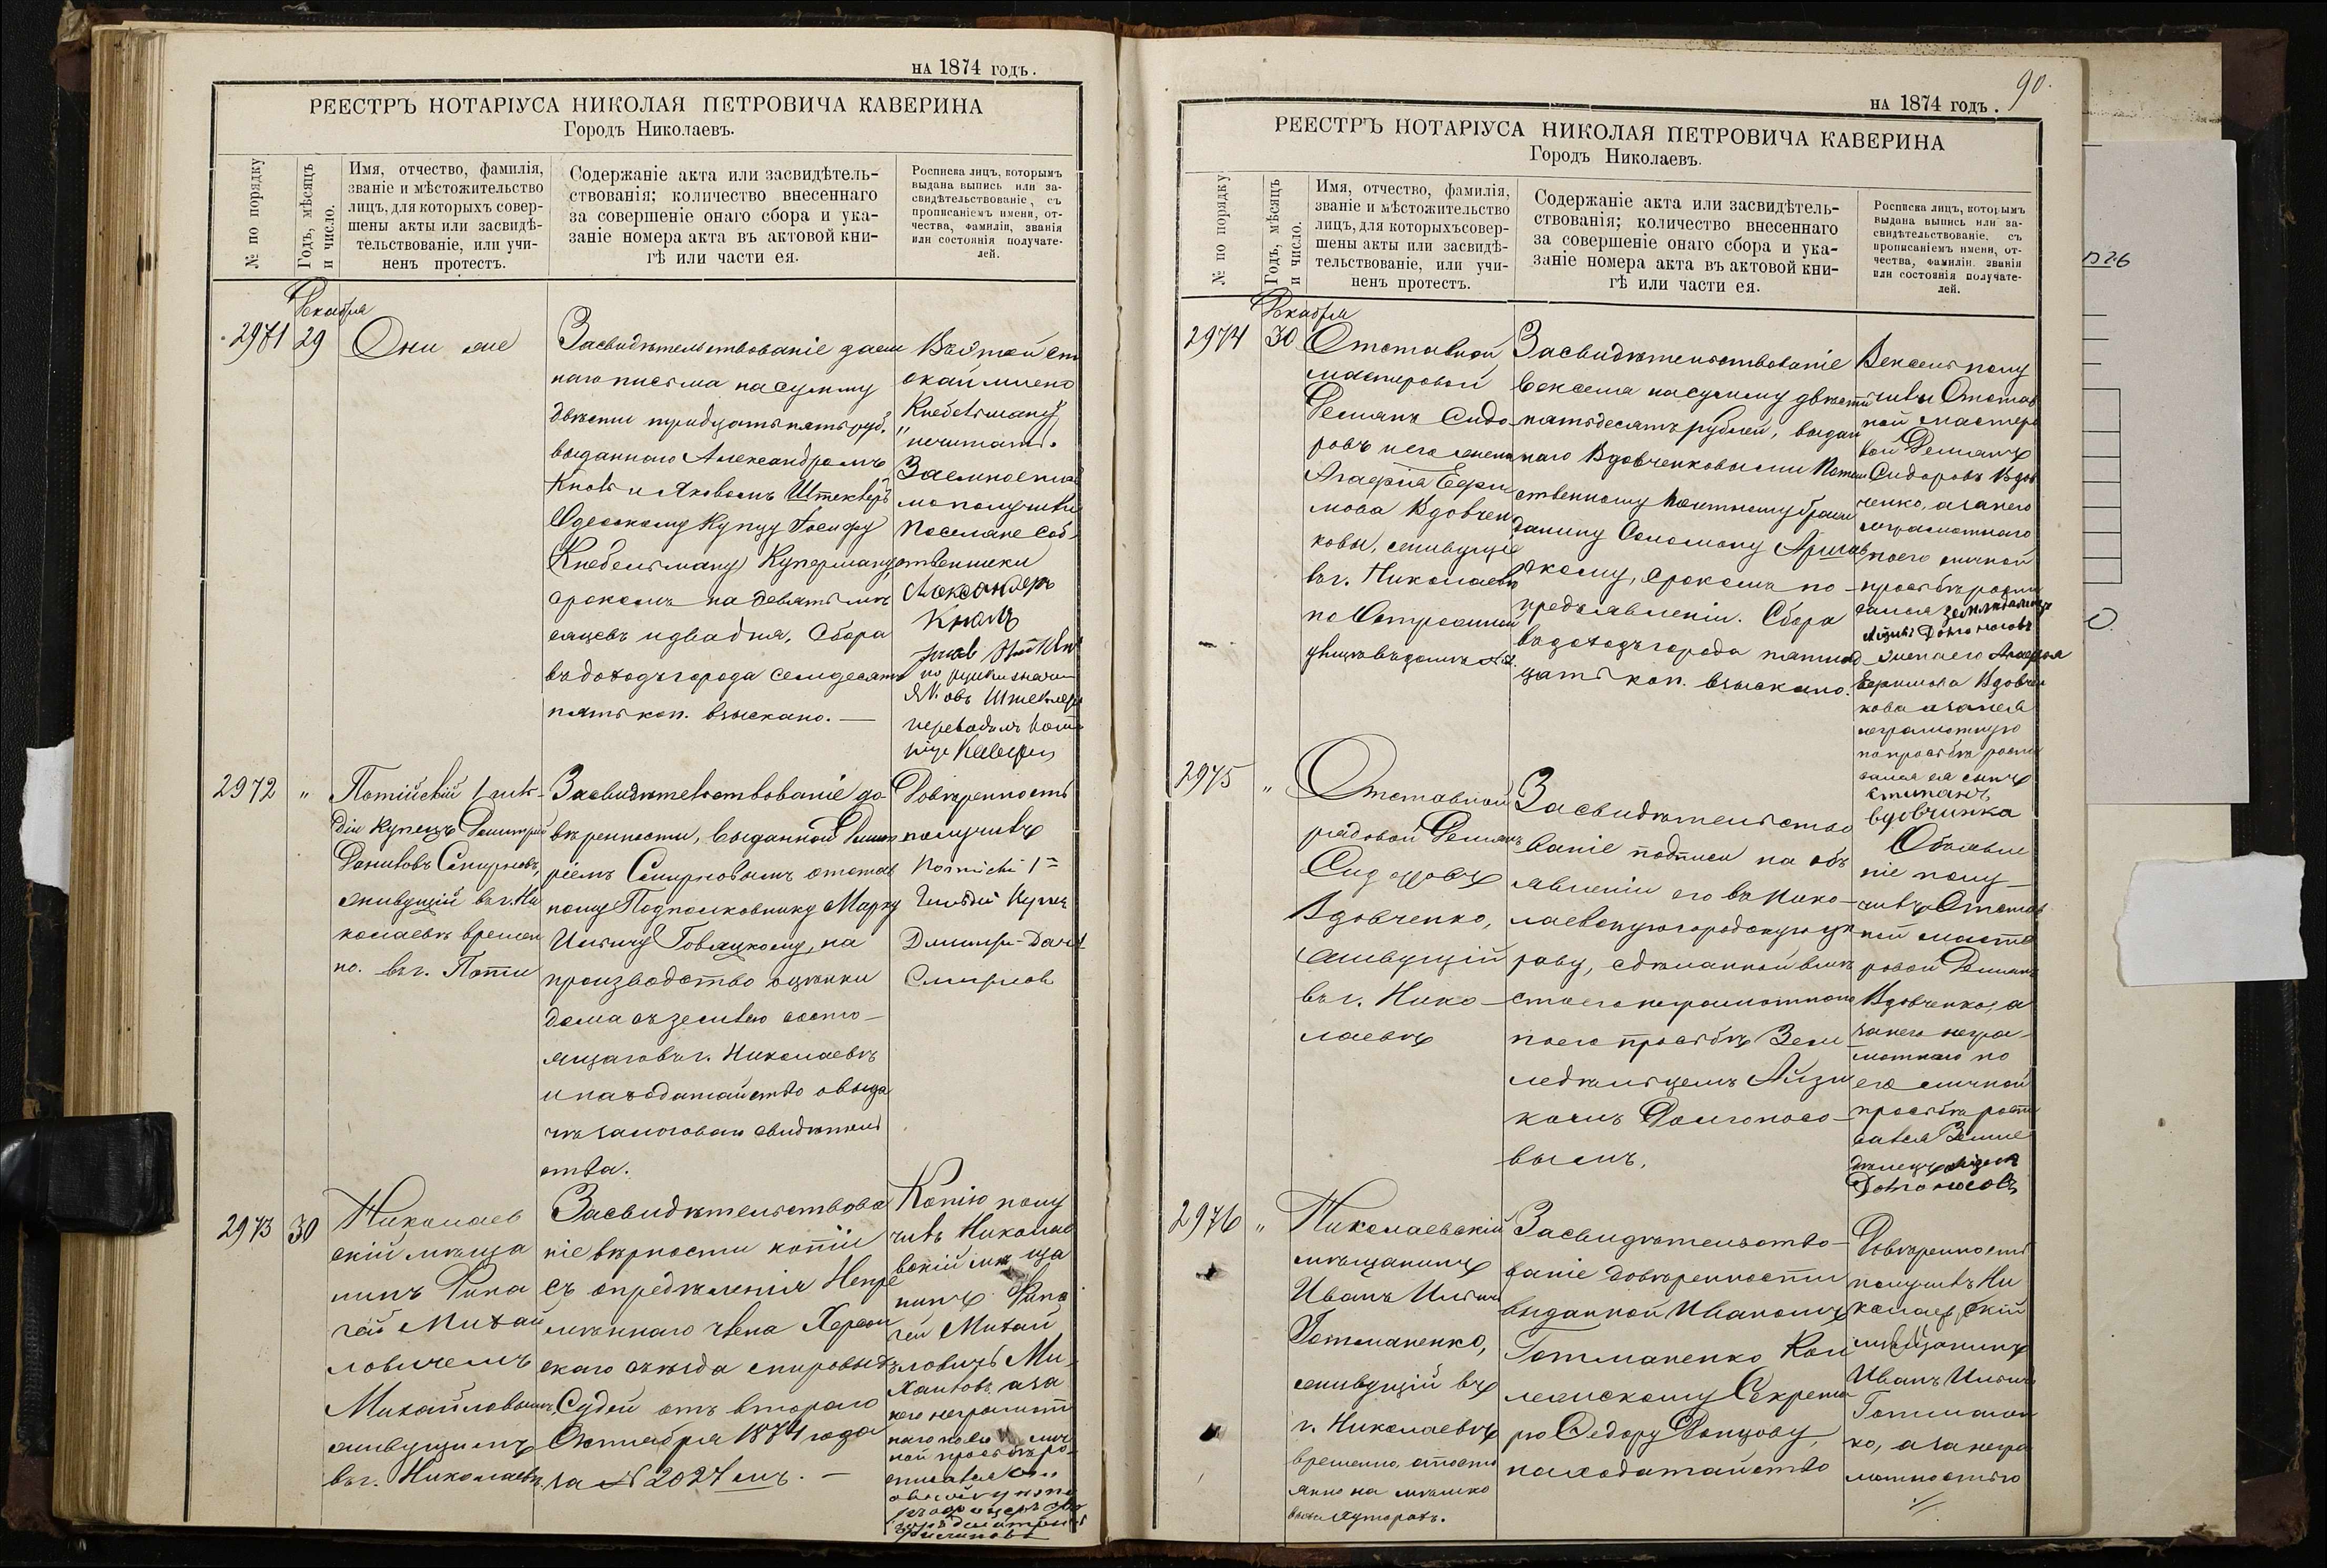 НА 1874 ГОДЪ.
РЕЕСТРЪ НОТАРІУСА НИКОЛАЯ ПЕТРОВИЧА КАВЕРИНА
Городъ Николаевъ.
№ по порядку
Годъ, мѣсяцъ
и число.
Имя, отчество, фамилія,
званіе и мѣстожительство
лицъ, для которыхъ совер-
шены акты или засвидѣ-
тельствованіе, или учи-
ненъ протестъ.
Содержаніе акта или засвидѣтель-
ствованія; количество внесеннаго
за совершеніе онаго сбора и ука-
заніе номера акта въ актовой кни-
гѣ или части ея.
Росписка лицъ, которымъ
выдана выпись или за-
свидѣтельствованіе, съ
прописаніемъ имени, от-
чества, фамиліи, званія
или состоянія получате-
лей.
Декабря
2971
29
Они же
Засвидѣтельствованіе заем
наго письма на сумму
двѣсти тридцать пять руб.
выданнаго Александромъ
Кноль и Яковомъ Штеклеръ
Одесскому Купцу Іосифу
Кнебельману Куперману,
срокомъ на девять мѣ
сяцевъ и два дня. Сбора
въ доходъ города семьдесятъ
пять коп. взыскано. —
Кнебельману
"нечитать".
Заемное пись
мо получили
Поселяне соб-
ственники
Александръ
Кноль
по русски значи
Яковъ Штеклеръ
переводилъ Нота
ріусъ Каверинъ
2972
"
Потійскій 1 гиль-
діи купецъ Дмитрій
Даниловъ Смирновъ,
живущій въ г. Ни
колаевѣ времен
но. въ г. Поти
Засвидѣтельствованіе до-
вѣренности, выданной Дмит
ріемъ Смирновымъ отстав
ному Подполковнику Марку
Ильичу Говяцкому, на
производство оцѣнки
дома съ землею состо-
ящаго въ г. Николаевѣ
и на ходатайство о выда
чѣ залоговаго свидѣтель
ства.
Довѣренность
получилъ
Потійскій 1=
Гильдіи Купец
Дмитри-Дани
Смирнов
2973
30
Николаев
скій мѣща
нинъ Рина
гей Михай
ловичемъ
Михайловымъ,
живущимъ
въ г. Николаевѣ.
Засвидѣтельствова
ніе вѣрности копіи
съ опредѣленія Непре
мѣннаго члена Херсон
скаго съѣзда мировыхъ
Судей отъ втораго
Октября 1874 года
за № 2027 мъ. —
Копію полу
чилъ Николае
вскій мѣ ща
нинъ Рина
гей Михай
ловичъ Ми-
хайловъ, а за
него неграмот
наго по его лич
ной просьбѣ ро-
90.
НА 1874 ГОДЪ.
РЕЕСТРЪ НОТАРІУСА НИКОЛАЯ ПЕТРОВИЧА КАВЕРИНА
Городъ Николаевъ.
№ по порядку
Годъ, мѣсяцъ
и число.
Имя, отчество, фамилія,
званіе и мѣстожительство
лицъ, для которыхъ совер-
шены акты или засвидѣ-
тельствованіе, или учи-
ненъ протестъ.
Содержаніе акта или засвидѣтель-
ствованія; количество внесеннаго
за совершеніе онаго сбора и ука-
заніе номера акта въ актовой кни-
гѣ или части ея.
Росписка лицъ, которымъ
выдана выпись или за-
свидѣтельствованіе, съ
прописаніемъ имени, от-
чества, фамиліи, званія
или состоянія получате-
лей.
Декабря
2974
30
Отставной
мастеровой
Демянъ Сидо-
ровъ и его жена
Агафія Ефи
мова Вдовчен
ковы, живущіе
въ г. Николаевѣ
Засвидѣтельствованіе
векселя на сумму двѣсти
пятьдесятъ рублей, выдан
наго Вдовченковыми Потом
ственному Почетному Граж
данину Соломону Аршав
скому, срокомъ по
предъявленіи. Сбора
въ доходъ города пятнад
цать коп. взыскано.
Вексель полу
чили Отстав
ной мастеро
вой Демянъ
Сидоровъ Вдов
ченко, а за него
неграмотнаго
по его личной
просьбѣ роспи
сался земледѣлецъ
Айзикъ Долгоносовъ
жена его Агафія
Ефимова Вдовчен
кова а за нея
неграмотную
по просьбѣ роспи
сался ея сынъ
степанъ
вдовчинка
2975
"
Отставной
рядовой Демянъ
Сидоровъ
Вдовченко,
живущій
въ г. Нико-
лаевѣ
Засвидѣтельство
ваніе подписи на объ
явленіи его въ Нико-
лаевскую городскую уп
раву, сдѣланной вмѣ
сто его неграмотнаго
по его просьбѣ Зем
ледѣльцемъ Айзи
комъ Долгоносо-
вымъ.
Объявле
ніе полу-
чилъ Отстав
ной масте
ровой Демянъ
Вдовченко, а
за него негра-
мотнаго по
его личной
просьбѣ роспи
сался Земле
дѣлецъ Айзикъ
Долгоносовъ
2976
"
Николаевскій
мѣщанинъ
Иванъ Ильичъ
Готманенко,
живущій въ
г. Николаевѣ
временно, а посто
янно на мѣшко
выхъ хуторахъ.
Засвидѣтельство-
ваніе довѣренности
выданной Иваномъ
Готманенко Кол
лежскому Секрета
рю Ѳедору Донцову,
на ходатайство
Довѣренность
получилъ Ни
колаевскій
мѣщанинъ
Иванъ Ильичъ
Готманен
ко, а за негра
мотностью